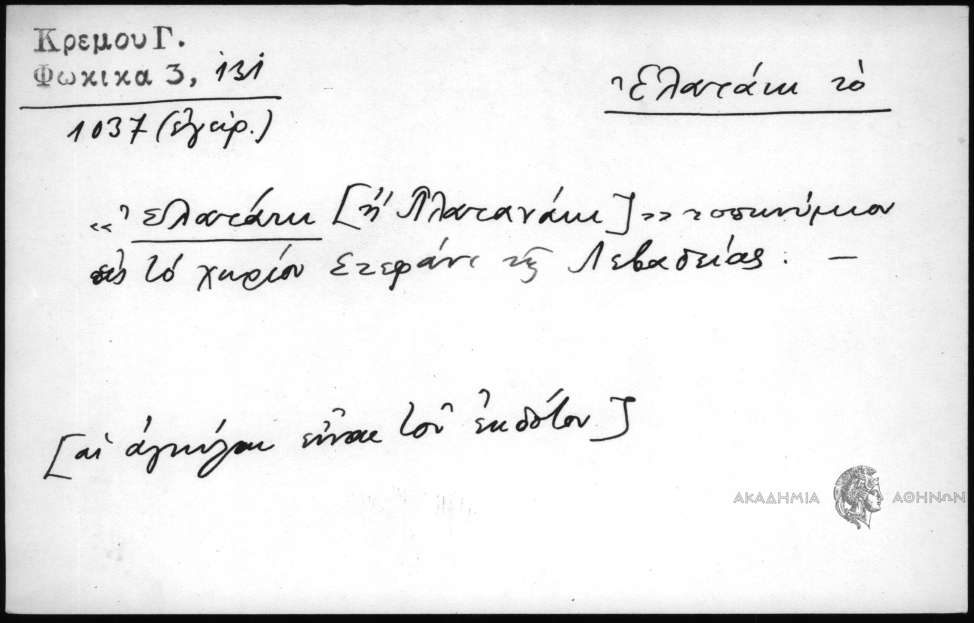 Κρεμου Γ.
Φωκικα 3, 131
1037 (ἐγειρ.)
Ἐλατάκι τὸ
«Ἐλατάκι [ἢ Πλατανάκι]» τοπωνύμιον
εἰς τὸ χωρίον Στεφάνι τῆς Λεβαδείας. —
[αἱ ἀγκύλαι εἶναι τοῦ ἐκδότου]
ΑΚΑΔΗΜΙΑ ΑΘΗΝΩΝ